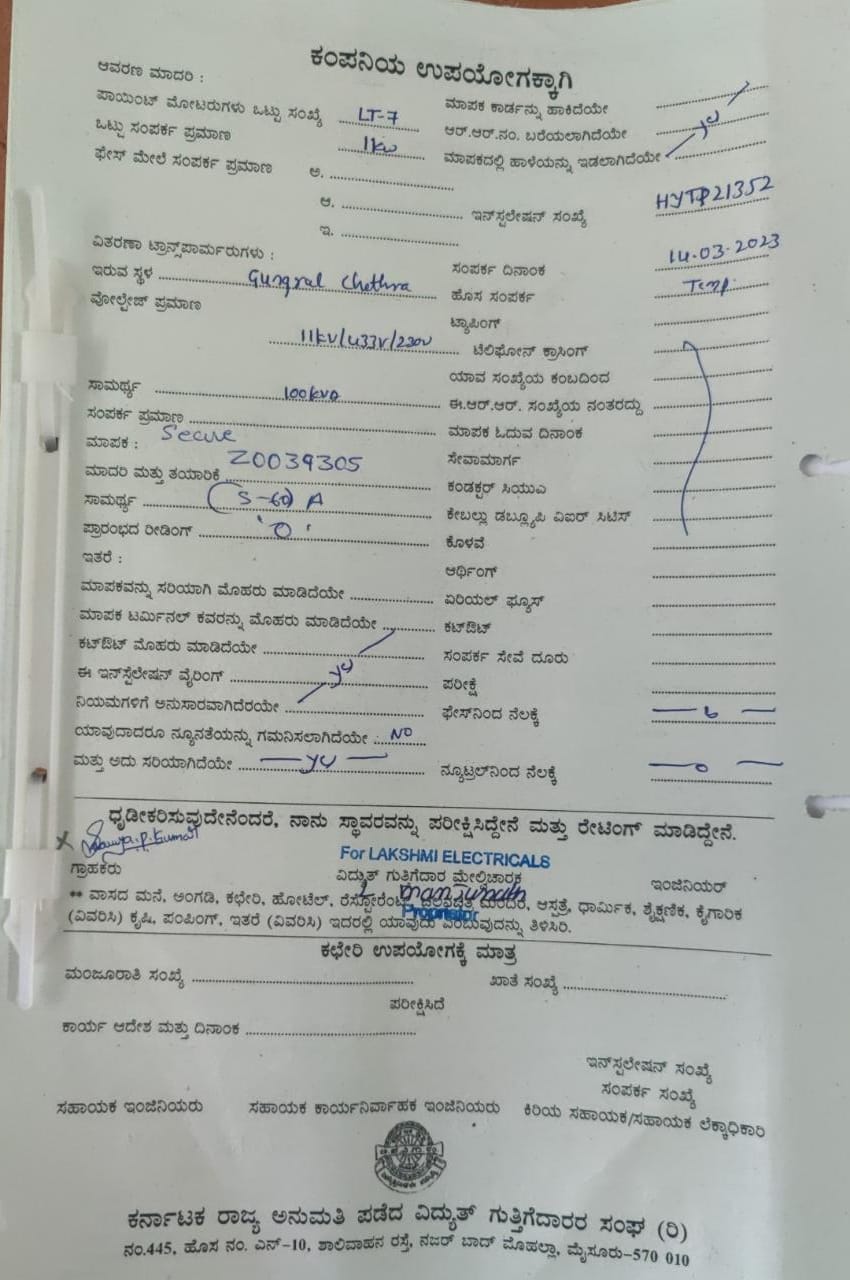 ಕಂಪನಿಯ ಉಪಯೋಗಕ್ಕಾಗಿ
ಆವರಣ ಮಾದರಿ :
ಪಾಯಿಂಟ್ ಮೋಟರುಗಳು ಒಟ್ಟು ಸಂಖ್ಯೆ LT-7 ಮಾಪಕ ಕಾರ್ಡನ್ನು ಹಾಕಿದೆಯೇ
ಒಟ್ಟು ಸಂಪರ್ಕ ಪ್ರಮಾಣ 1kw ಆರ್.ಆರ್.ನಂ. ಬರೆಯಲಾಗಿದೆಯೇ
ಫೇಸ್ ಮೇಲೆ ಸಂಪರ್ಕ ಪ್ರಮಾಣ ಅ. ಮಾಪಕದಲ್ಲಿ ಹಾಳೆಯನ್ನು ಇಡಲಾಗಿದೆಯೇ
ಆ. ಇನ್‌ಸ್ಟಲೇಷನ್ ಸಂಖ್ಯೆ HYTP21352
ಇ.
ವಿತರಣಾ ಟ್ರಾನ್ಸ್‌ಪಾರ್ಮರುಗಳು : ಸಂಪರ್ಕ ದಿನಾಂಕ 14-03-2023
ಇರುವ ಸ್ಥಳ Gungral Chethra ಹೊಸ ಸಂಪರ್ಕ Temp
ವೋಲ್ಟೇಜ್ ಪ್ರಮಾಣ ಟ್ಯಾಪಿಂಗ್
11kv/433v/230v ಟೆಲಿಫೋನ್ ಕ್ರಾಸಿಂಗ್
ಯಾವ ಸಂಖ್ಯೆಯ ಕಂಬದಿಂದ
ಸಾಮರ್ಥ್ಯ 100kva ಈ.ಆರ್.ಆರ್. ಸಂಖ್ಯೆಯ ನಂತರದ್ದು
ಸಂಪರ್ಕ ಪ್ರಮಾಣ ಮಾಪಕ ಓದುವ ದಿನಾಂಕ
ಮಾಪಕ : Secure ಸೇವಾಮಾರ್ಗ
ಮಾದರಿ ಮತ್ತು ತಯಾರಿಕೆ Z0039305 ಕಂಡಕ್ಟರ್ ಸಿಯುಎ
ಸಾಮರ್ಥ್ಯ (5-60) A ಕೇಬಲ್ಲು ಡಬ್ಲ್ಯೂಪಿ ವಿಐರ್ ಸಿಟಿಸ್
ಪ್ರಾರಂಭದ ರೀಡಿಂಗ್ '0' ಕೊಳವೆ
ಇತರೆ : ಆರ್ಥಿಂಗ್
ಮಾಪಕವನ್ನು ಸರಿಯಾಗಿ ಮೊಹರು ಮಾಡಿದೆಯೇ ಏರಿಯಲ್ ಫ್ಯೂಸ್
ಮಾಪಕ ಟರ್ಮಿನಲ್ ಕವರನ್ನು ಮೊಹರು ಮಾಡಿದೆಯೇ ಕಟ್‌ಔಟ್
ಕಟ್‌ಔಟ್ ಮೊಹರು ಮಾಡಿದೆಯೇ ಸಂಪರ್ಕ ಸೇವೆ ದೂರು
ಈ ಇನ್‌ಸ್ಟಲೇಷನ್ ವೈರಿಂಗ್ ಪರೀಕ್ಷೆ
ನಿಯಮಗಳಿಗೆ ಅನುಸಾರವಾಗಿದೆರಯೇ ಫೇಸ್‌ನಿಂದ ನೆಲಕ್ಕೆ
ಯಾವುದಾದರೂ ನ್ಯೂನತೆಯನ್ನು ಗಮನಿಸಲಾಗಿದೆಯೇ : NO
ಮತ್ತು ಅದು ಸರಿಯಾಗಿದೆಯೇ ನ್ಯೂಟ್ರಲ್‌ನಿಂದ ನೆಲಕ್ಕೆ — 0 —
ಧೃಡೀಕರಿಸುವುದೇನೆಂದರೆ, ನಾನು ಸ್ಥಾವರವನ್ನು ಪರೀಕ್ಷಿಸಿದ್ದೇನೆ ಮತ್ತು ರೇಟಿಂಗ್ ಮಾಡಿದ್ದೇನೆ.
For LAKSHMI ELECTRICALS
ಗ್ರಾಹಕರು ವಿದ್ಯುತ್ ಗುತ್ತಿಗೆದಾರ ಮೇಲ್ವಿಚಾರಕ ಇಂಜಿನಿಯರ್
Manjunath
** ವಾಸದ ಮನೆ, ಅಂಗಡಿ, ಕಛೇರಿ, ಹೋಟೆಲ್, ರೆಸ್ಟೋರೆಂಟ್, ಚಲನಚಿತ್ರ ಮಂದಿರ, ಆಸ್ಪತ್ರೆ, ಧಾರ್ಮಿಕ, ಶೈಕ್ಷಣಿಕ, ಕೈಗಾರಿಕ
Proprietor
(ವಿವರಿಸಿ) ಕೃಷಿ, ಪಂಪಿಂಗ್, ಇತರೆ (ವಿವರಿಸಿ) ಇದರಲ್ಲಿ ಯಾವುದು ಎಂಬುವುದನ್ನು ತಿಳಿಸಿರಿ.
ಕಛೇರಿ ಉಪಯೋಗಕ್ಕೆ ಮಾತ್ರ
ಮಂಜೂರಾತಿ ಸಂಖ್ಯೆ ಖಾತೆ ಸಂಖ್ಯೆ
ಪರೀಕ್ಷಿಸಿದೆ
ಕಾರ್ಯ ಆದೇಶ ಮತ್ತು ದಿನಾಂಕ
ಇನ್‌ಸ್ಟಲೇಷನ್ ಸಂಖ್ಯೆ
ಸಂಪರ್ಕ ಸಂಖ್ಯೆ
ಸಹಾಯಕ ಇಂಜಿನಿಯರು ಸಹಾಯಕ ಕಾರ್ಯನಿರ್ವಾಹಕ ಇಂಜಿನಿಯರು ಕಿರಿಯ ಸಹಾಯಕ/ಸಹಾಯಕ ಲೆಕ್ಕಾಧಿಕಾರಿ
ಕರ್ನಾಟಕ ರಾಜ್ಯ ಅನುಮತಿ ಪಡೆದ ವಿದ್ಯುತ್ ಗುತ್ತಿಗೆದಾರರ ಸಂಘ (ರಿ)
ನಂ.445, ಹೊಸ ನಂ. ಎನ್-10, ಶಾಲಿವಾಹನ ರಸ್ತೆ, ನಜರ್ ಬಾದ್ ಮೊಹಲ್ಲಾ, ಮೈಸೂರು-570 010